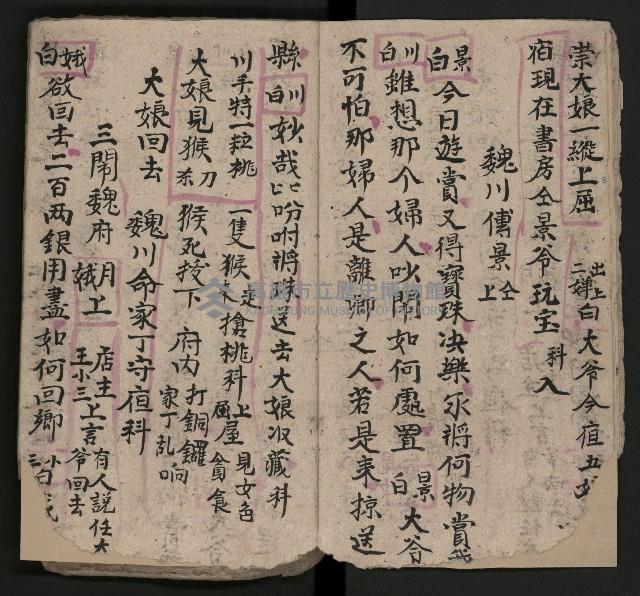 崇大娘一縱上屈
出上
二嫂白大爷今宿五
宿現在書房仝景爷玩宝 科 入
魏川傳景仝上
景白今日遊賞又得寶珠决樂永將何物賞
川白雖想那个婦人吵鬧如何處置 景白 大爷
不可怕那婦人是離鄉之人若是来掠送
縣川白妙哉比吩咐將珠送去大娘收藏科
川手特一粒桃一隻猴走来搶桃科上屋見女色
大娘見猴刀杀猴死授下府内打銅鑼家丁乱响
大娘回去 魏川命家丁守宿科
三鬧魏府 月娥上 店主王小三上言有人說任大爷回去
娥白欲回去二百两銀用盡如何回鄉
高雄市立歷史博物館
KAOHSIUNG MUSEUM OF HISTORY